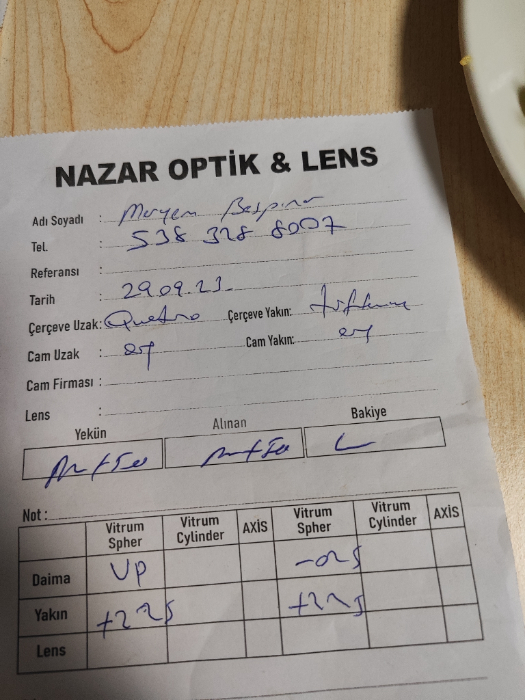 NAZAR OPTİK & LENS
Adı Soyadı : Meryem Beşpınar
Tel. : 538 328 8007
Referansı :
Tarih : 29.09.23
Çerçeve Uzak: Quatro Çerçeve Yakın:
Cam Uzak : Cam Yakın:
Cam Firması :
Lens :
Yekün Alınan Bakiye
Not :
Vitrum Spher Vitrum Cylinder AXİS Vitrum Spher Vitrum Cylinder AXİS
Daima UP -025
Yakın +225 +225
Lens